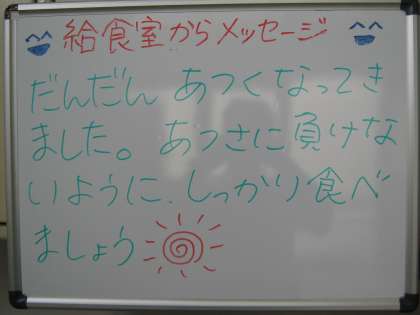 給食室からメッセージ
だんだん あつくなってき
ました。 あつさに負けな
いように、しっかり食べ
ましょう